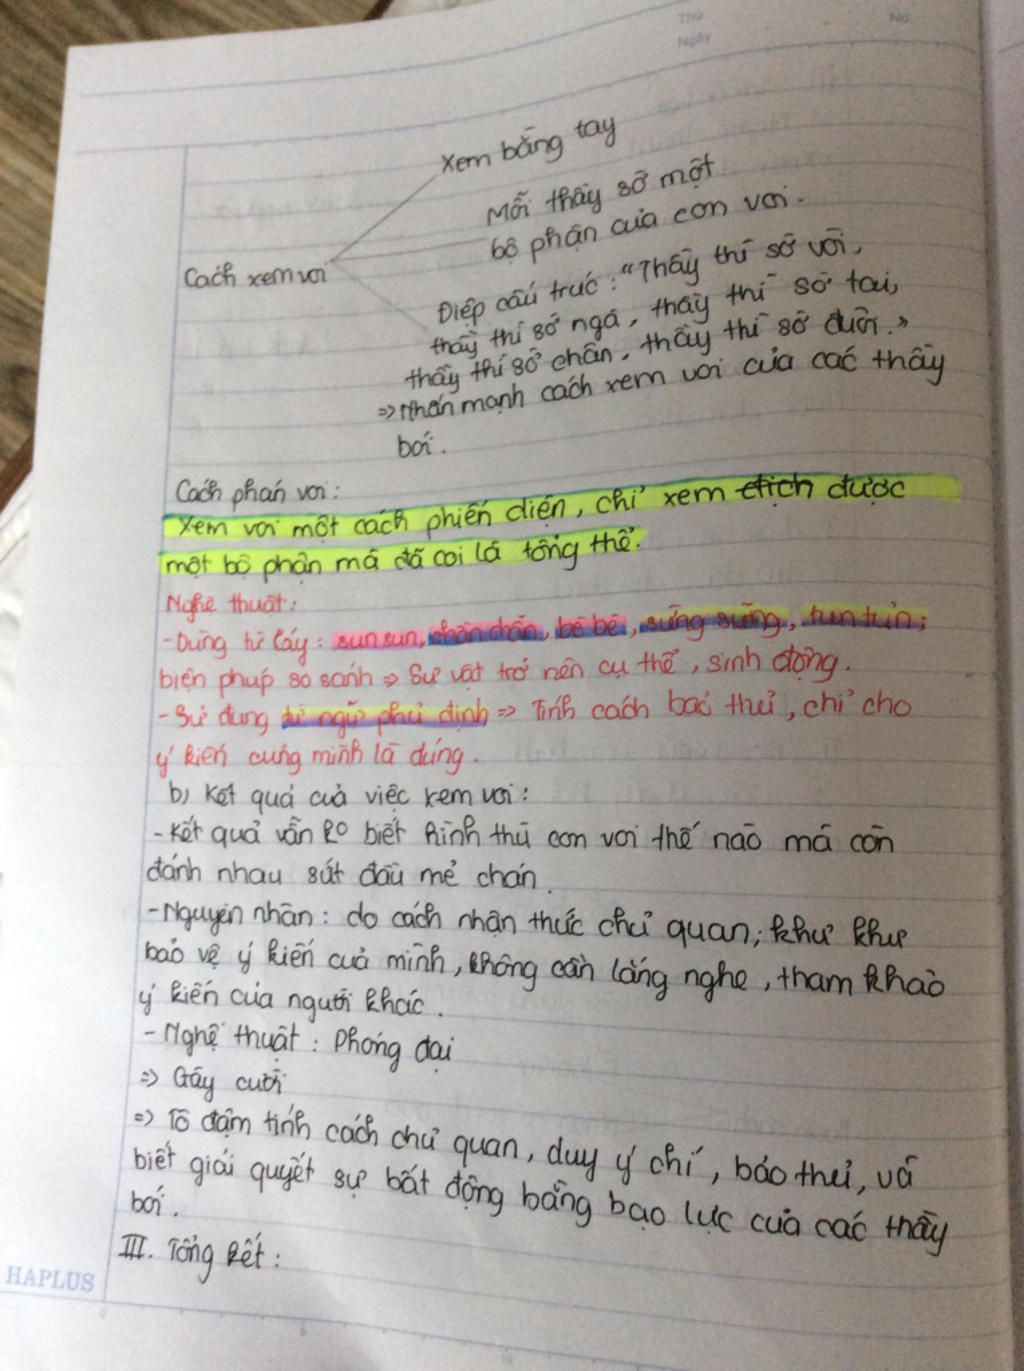 Thứ
Ngày
No.
Xem bằng tay
Mỗi thầy sờ một
bộ phận của con voi.
Cách xem voi
Điệp cấu trúc: "Thầy thì sờ vòi,
thầy thì sờ ngà, thầy thì sờ tai,
thầy thì sờ chân, thầy thì sờ đuôi."
=> Nhấn mạnh cách xem voi của các thầy
bói.
Cách phán voi:
Xem voi một cách phiến diện, chỉ xem được
một bộ phận mà đã coi là tổng thể.
Nghệ thuật:
- Dùng từ láy: sun sun, chần chẫn, bè bè, sừng sững, tun tủn;
biện pháp so sánh => Sự vật trở nên cụ thể, sinh động.
- Sử dụng từ ngữ phủ định => Tính cách bảo thủ, chỉ cho
ý kiến cung mình là đúng.
b) Kết quả của việc xem voi:
- Kết quả vẫn ko biết hình thù con voi thế nào mà còn
đánh nhau sứt đầu mẻ chán.
- Nguyên nhân: do cách nhận thức chủ quan; khư khư
bảo vệ ý kiến của mình, không cần lắng nghe, tham khảo
ý kiến của người khác.
- Nghệ thuật: Phóng đại
=> Gây cười
=> Tô đậm tính cách chủ quan, duy ý chí, bảo thủ, và
biết giải quyết sự bất động bằng bạo lực của các thầy
bói.
III. Tổng kết:
HAPLUS
0
5
10